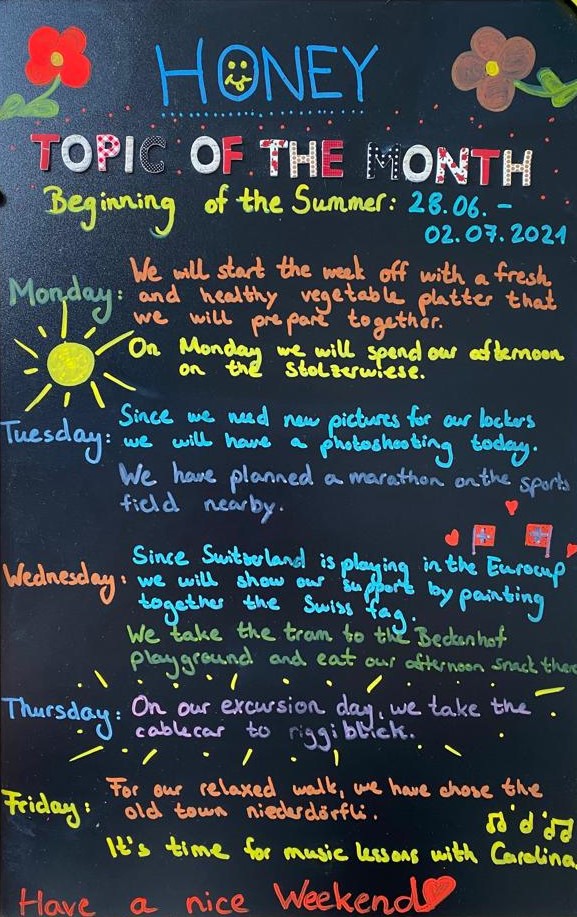 HONEY
TOPIC OF THE MONTH
Beginning of the Summer: 28.06. -
02.07.2021
Monday: We will start the week off with a fresh
and healthy vegetable platter that
we will prepare together.
On Monday we will spend our afternoon
on the Stolzerwiese.
Tuesday: Since we need new pictures for our lockers
we will have a photoshooting today.
We have planned a marathon on the sports
field nearby.
Wednesday: Since Switzerland is playing in the Eurocup
we will show our support by painting
together the Swiss fag.
We take the tram to the Beckenhof
playground and eat our afternoon snack there
Thursday: On our excursion day, we take the
cablecar to riggiblick.
Friday: For our relaxed walk, we have chose the
old town niederdörfli.
It's time for music lessons with Carolina.
Have a nice Weekend